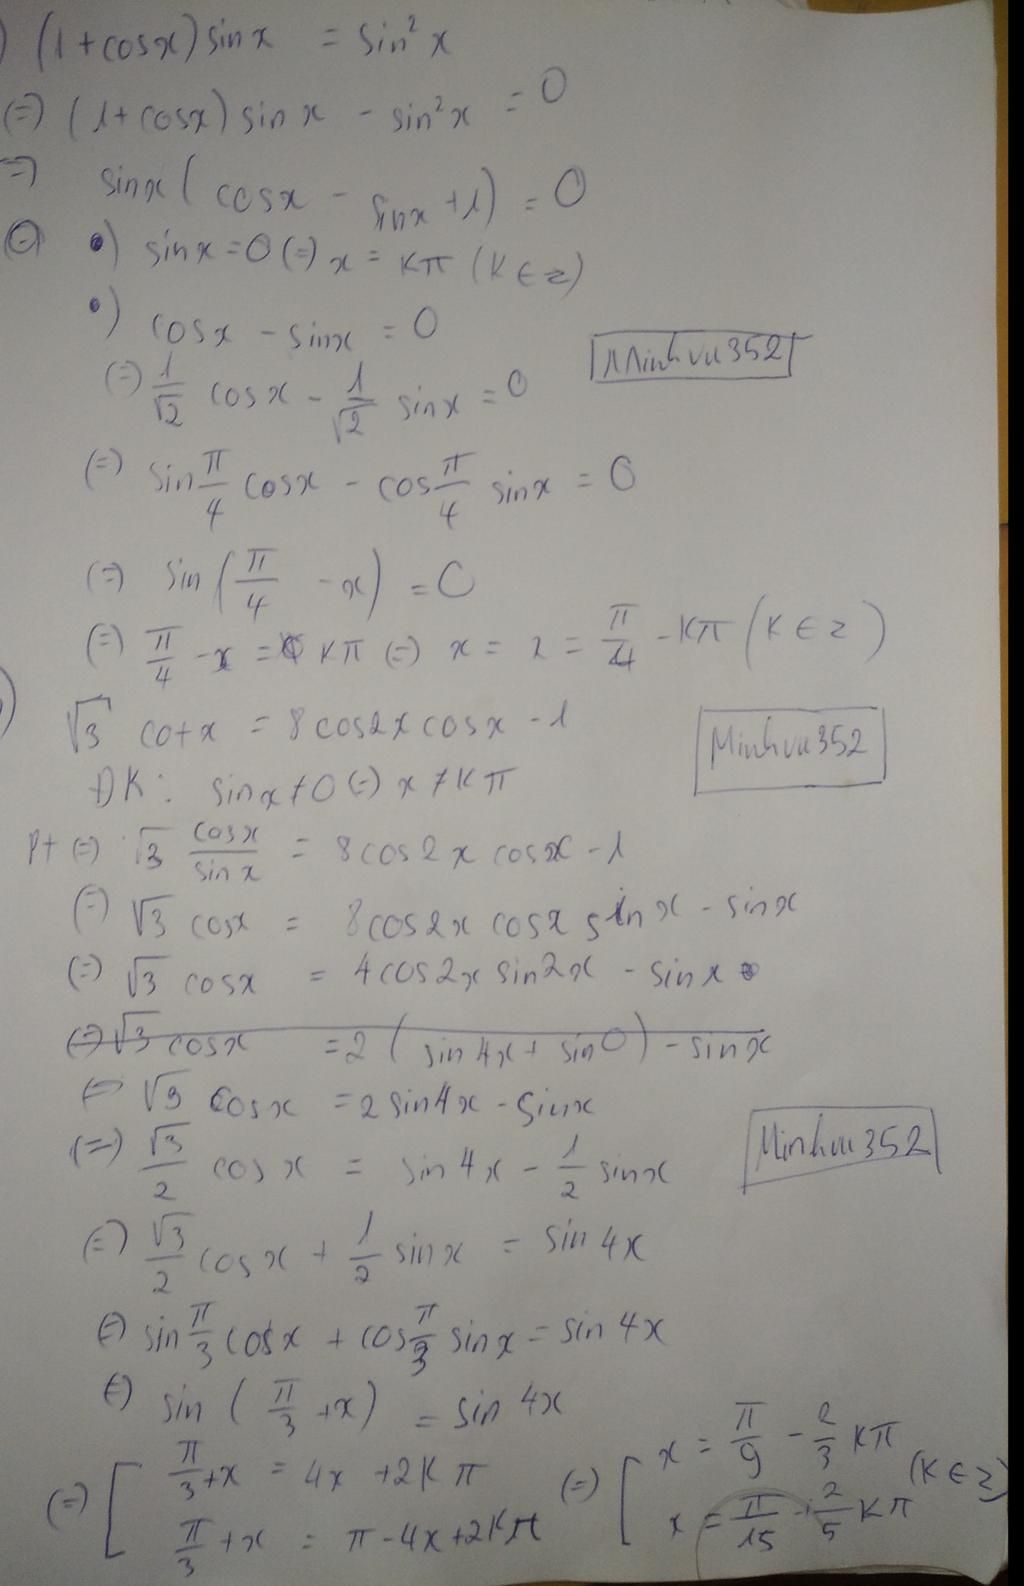 ) (1+cosx)sinx = sin²x
(=) (1+cosx)sinx - sin²x = 0
=) sinx(cosx - sinx+1) = 0
(=) •) sinx=0 (=) x = kπ (k ∈ z)
•) cosx - sinx = 0
Minhvu352
(=) 1/√2 cosx - 1/√2 sinx = 0
(=) sin π/4 cosx - cos π/4 sinx = 0
(=) sin(π/4 - x) = 0
(=) π/4 - x = kπ (=) x = 2 = π/4 - kπ (k ∈ z)
) √3 cotx = 8cos2xcosx - 1
Minhvu352
ĐK: sinx ≠ 0 (=) x ≠ kπ
Pt (=) √3 cosx/sinx = 8cos2x cosx - 1
(=) √3 cosx = 8cos2x cosx sinx - sinx
(=) √3 cosx = 4cos2x sin2x - sinx
(=) √3 cosx = 2(sin4x + sin0) - sinx
(=) √3 cosx = 2sin4x - sinx
(=) √3/2 cosx = sin4x - 1/2 sinx
Minhvu352
(=) √3/2 cosx + 1/2 sinx = sin4x
(=) sin π/3 cosx + cos π/3 sinx = sin4x
(=) sin(π/3 + x) = sin4x
(=) [ π/3 + x = 4x + 2kπ (=) [ x = π/9 - 2/3 kπ (k ∈ z)
π/3 + x = π - 4x + 2kπ x = π/15 + 2/5 kπ